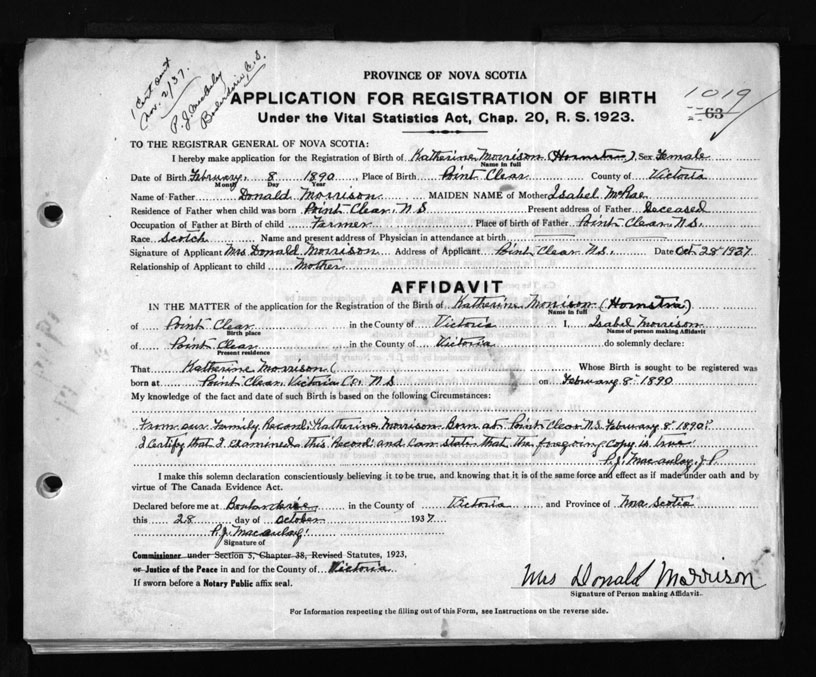 1 Cert sent
Nov. 2/37.
P.J. Macaulay
PROVINCE OF NOVA SCOTIA
APPLICATION FOR REGISTRATION OF BIRTH
1019
63
Under the Vital Statistics Act, Chap. 20, R. S. 1923.
TO THE REGISTRAR GENERAL OF NOVA SCOTIA:
I hereby make application for the Registration of Birth of Katherine Morrison (Hornstra). Sex Female
Name in full
Date of Birth February. 8 1890 , Place of Birth Point Clear County of Victoria
Month Day Year
Name of Father Donald Morrison MAIDEN NAME of Mother Isabel McRae
Residence of Father when child was born Point Clear. N.S Present address of Father Deceased
Occupation of Father at Birth of child Farmer Place of birth of Father Point Clear, N.S.
Race Scotch Name and present address of Physician in attendance at birth
Signature of Applicant Mrs Donald Morrison Address of Applicant Point Clear N.S. Date Oct 28 1937
Relationship of Applicant to child Mother
AFFIDAVIT
IN THE MATTER of the application for the Registration of the Birth of Katherine Morrison (Hornstra)
Name in full
of Point Clear in the County of Victoria I, Isabel Morrison
Birth place Name of person making Affidavit
of Point Clear in the County of Victoria do solemnly declare:
Present residence
That Katherine Morrison ( Whose Birth is sought to be registered was
born at Point Clear. Victoria Co. N.S on February 8" 1890
My knowledge of the fact and date of such Birth is based on the following Circumstances:
From our Family Record: Katherine Morrison Born at Point Clear N.S. February 8" 1890"
I Certify that I examined this Record and can state that the foregoing copy is true
P.J. Macaulay J.P.
I make this solemn declaration conscientiously believing it to be true, and knowing that it is of the same force and effect as if made under oath and by
virtue of The Canada Evidence Act.
Declared before me at in the County of Victoria and Province of Nova Scotia
this 28 day of October 1937
P.J. Macaulay
Signature of
Commissioner under Section 5, Chapter 38, Revised Statutes, 1923,
or Justice of the Peace in and for the County of Victoria
If sworn before a Notary Public affix seal.
Mrs Donald Morrison
Signature of Person making Affidavit.
For Information respecting the filling out of this Form, see Instructions on the reverse side.